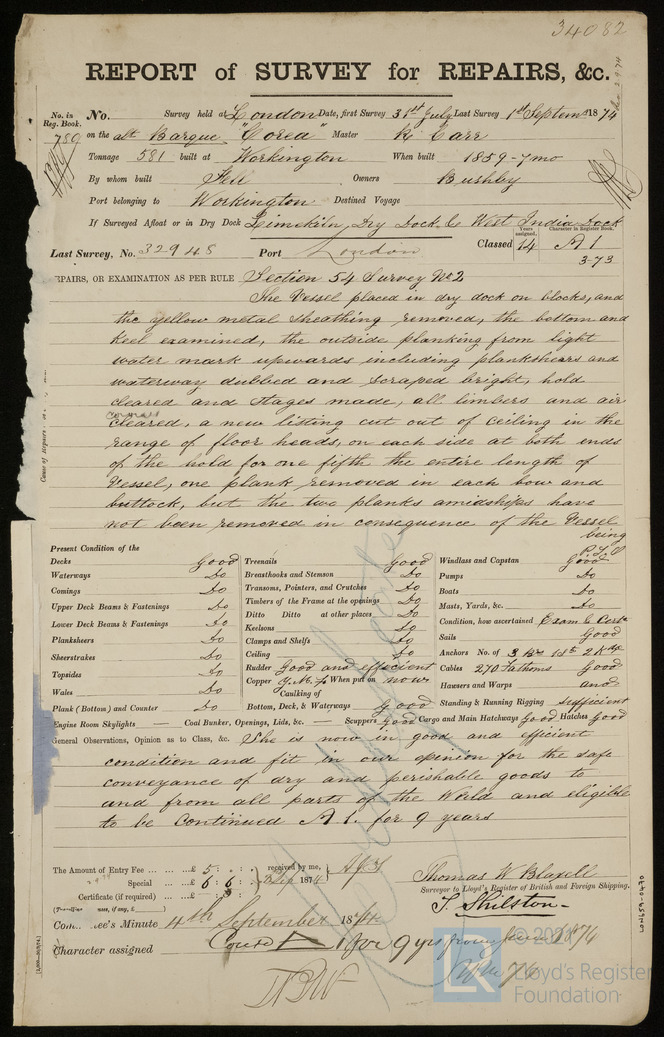 34082
REPORT of SURVEY for REPAIRS, &c.
No. in Reg. Book. No. Survey held at London Date, first Survey 31st July Last Survey 1st Septem 1874
789 on the Barque "Corea" Master R. Carr
Tonnage 581 built at Workington When built 1859-7mo
By whom built Fell Owners Bushby
Port belonging to Workington Destined Voyage
If Surveyed Afloat or in Dry Dock Limekiln Dry Dock & West India Dock
Last Survey, No. 32948 Port London Classed Years assigned, 14 Character in Register Book. A 1
3-73
EPAIRS, OR EXAMINATION AS PER RULE Section 54 Survey No 2
The Vessel placed in dry dock on blocks, and
the yellow metal sheathing removed, the bottom and
keel examined, the outside planking from light
water mark upwards including planksheers and
waterway dubbed and scraped bright, hold
cleared and stages made, all limbers and air
cleared, a new listing cut out of ceiling in the
range of floor heads, on each side at both ends
of the hold for one fifth the entire length of
Vessel, one plank removed in each bow and
buttock, but the two planks amidships have
not been removed in consequence of the Vessel
being
Present Condition of the
Decks Good
Waterways Do
Comings Do
Upper Deck Beams & Fastenings Do
Lower Deck Beams & Fastenings Do
Planksheers Do
Sheerstrakes Do
Topsides Do
Wales Do
Plank (Bottom) and Counter Do
Treenails Good
Breasthooks and Stemson Do
Transoms, Pointers, and Crutches Do
Timbers of the Frame at the openings Do
Ditto Ditto at other places Do
Keelsons Do
Clamps and Shelfs Do
Ceiling Do
Rudder Good and efficient
Copper Y.M. When put on now
Caulking of
Bottom, Deck, & Waterways Good
Windlass and Capstan Good
Pumps Do
Boats Do
Masts, Yards, &c. Do
Condition, how ascertained Exam & Certe
Sails Good
Anchors No. of 3 Brs 1 St 2 Kdge
Cables 270 Fathoms Good
Hawsers and Warps and
Standing & Running Rigging sufficient
Engine Room Skylights — Coal Bunker, Openings, Lids, &c. — Scuppers Good Cargo and Main Hatchways Good Hatches Good
General Observations, Opinion as to Class, &c. She is now in good and efficient
condition and fit in our openion for the safe
conveyance of dry and perishable goods to
and from all parts of the World and eligible
to be Continued A 1. for 9 years
The Amount of Entry Fee ... £ 5 : received by me,
Special ... £ 6 : 6 : 1874
Certificate (if required) ... £
Thomas W Blaxell
Surveyor to Lloyd's Register of British and Foreign Shipping.
T. Shilston
Committee's Minute 4th September 1874
Character assigned Contd A 1 for 9 yrs from
LON659-0270
© 2021
LR
Lloyd's Register
Foundation